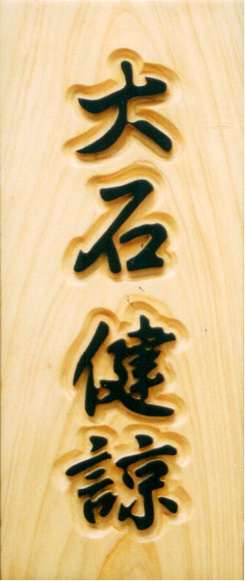 大石健諒